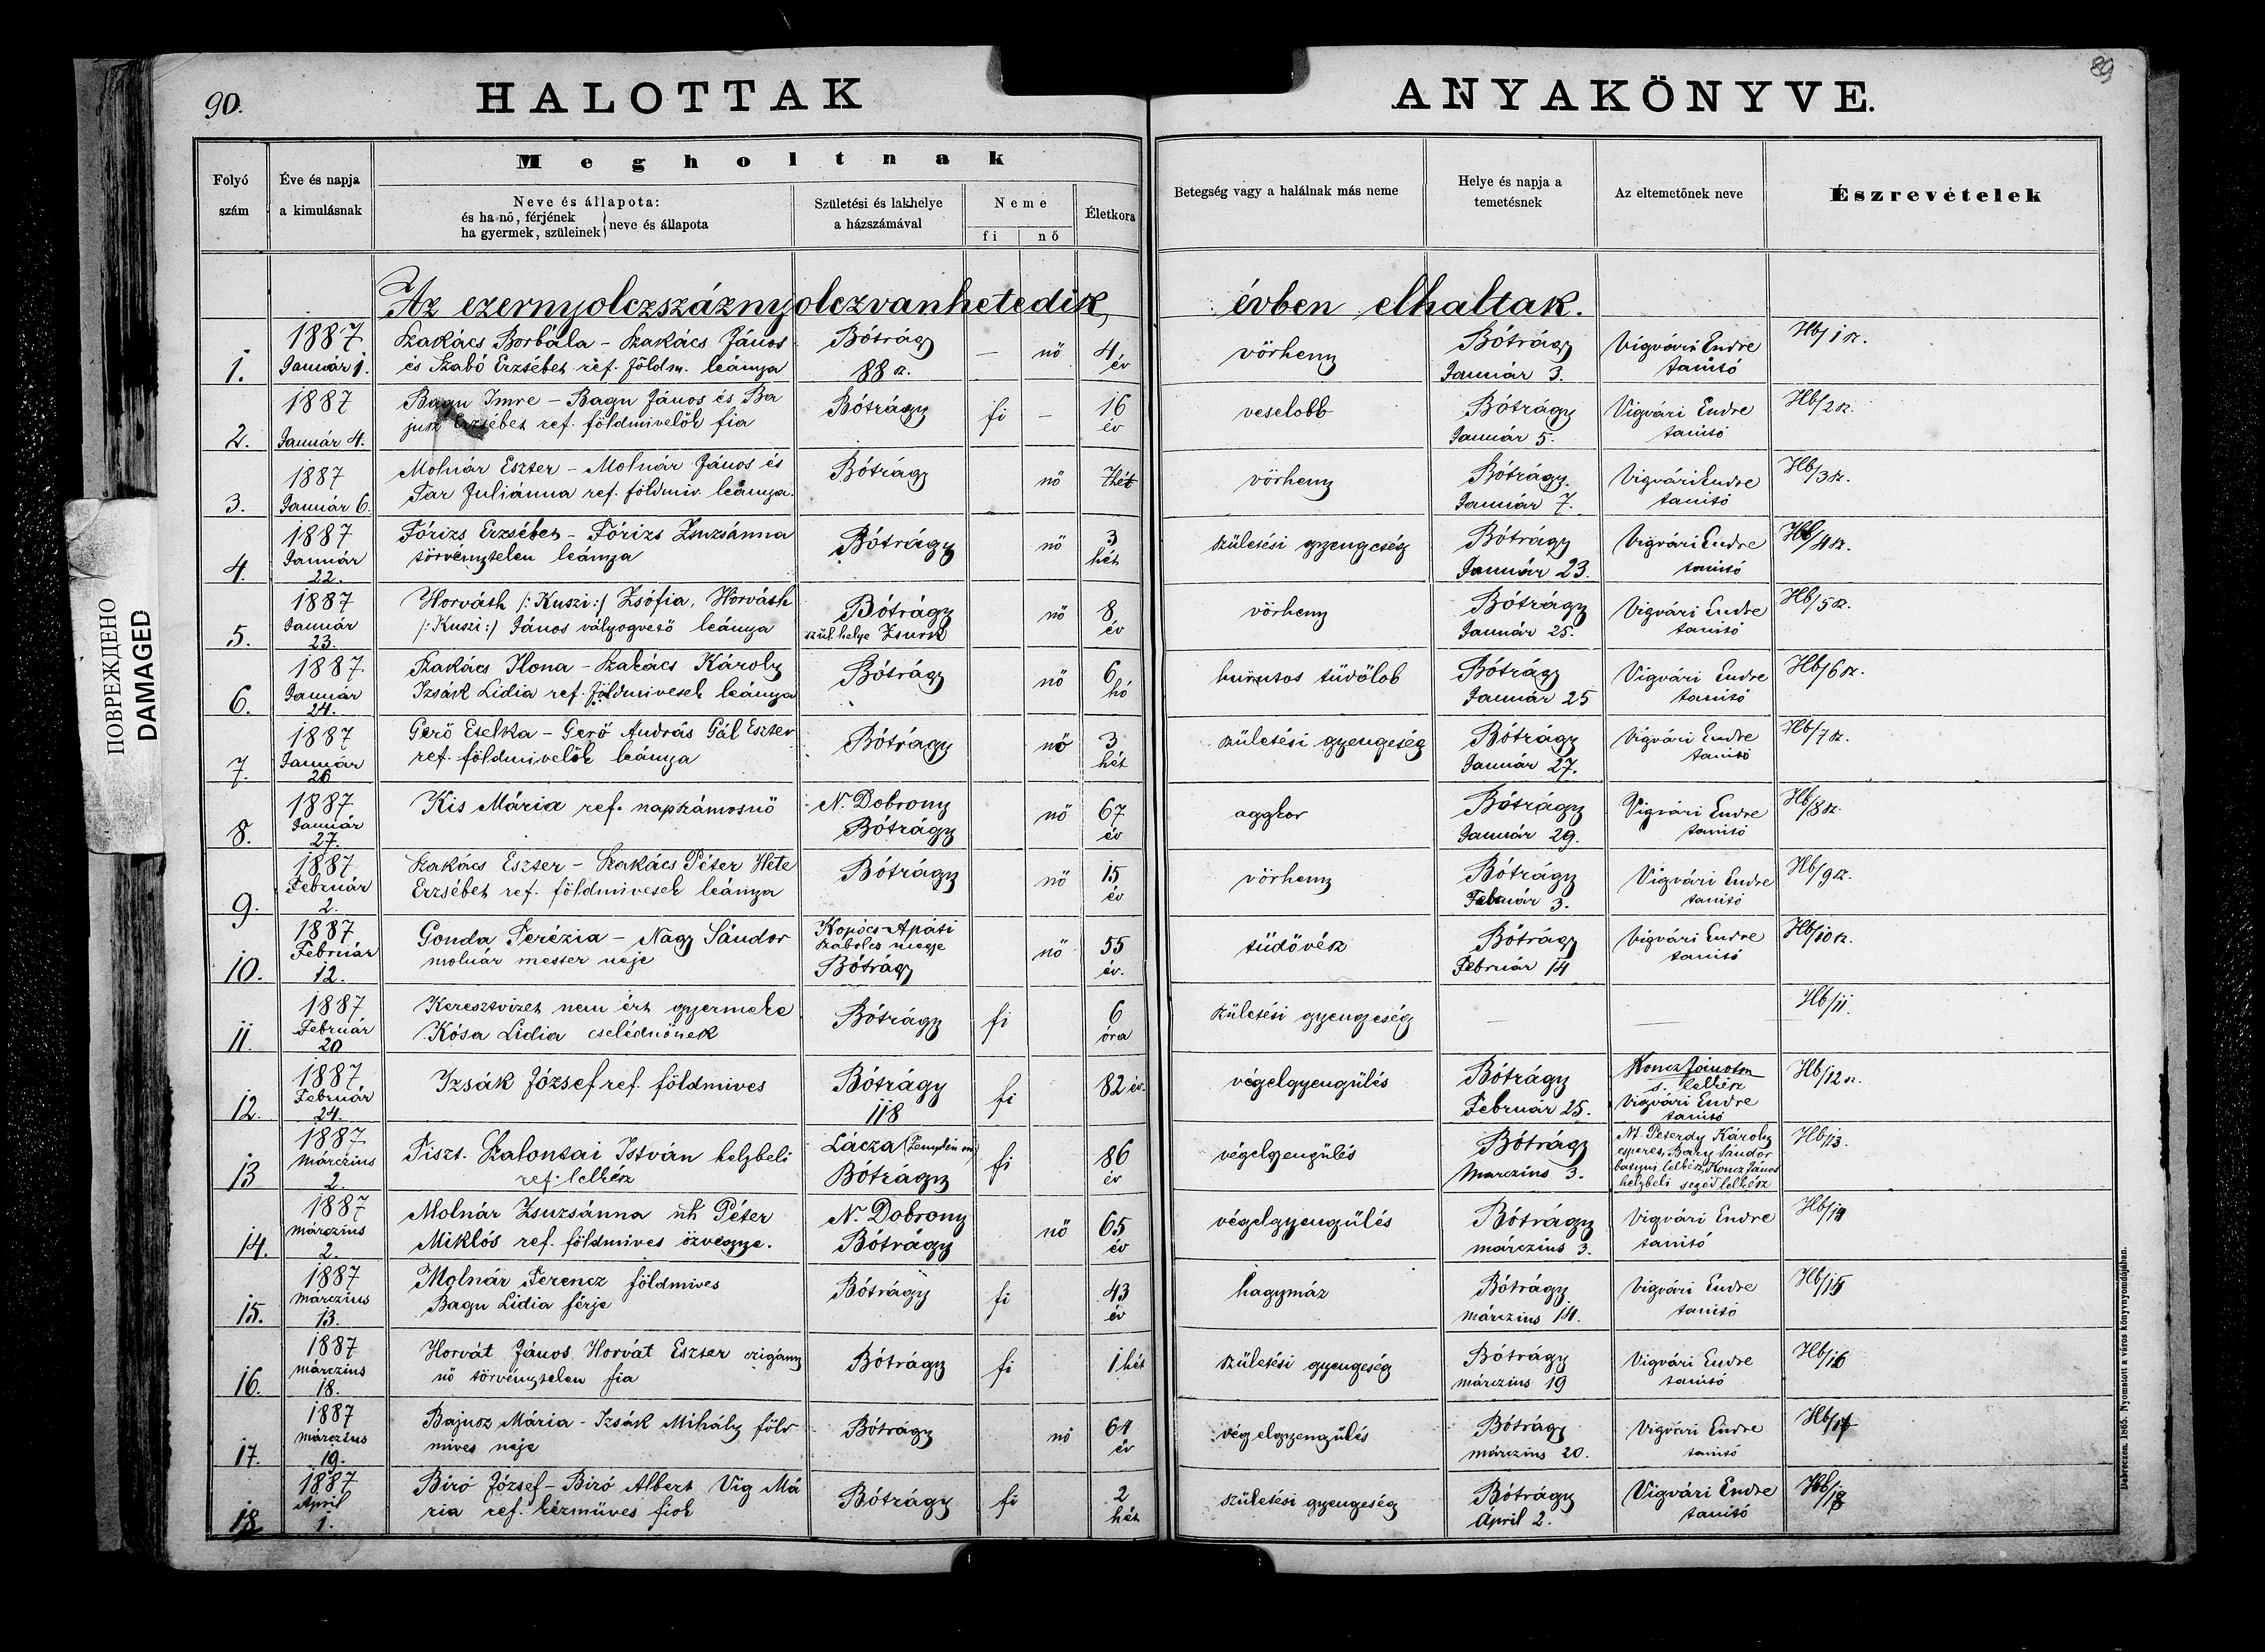 90.
HALOTTAK
ANYAKÖNYVE.
89
Folyó szám
Éve és napja a kimulásnak
Megholtnak
Neve és állapota:
és ha nő, férjének
ha gyermek, szüleinek
neve és állapota
Születési és lakhelye a házszámával
Neme
fi
nő
Életkora
Betegség vagy a halálnak más neme
Helye és napja a temetésnek
Az eltemetőnek neve
Észrevételek
Az ezernyolczszáznyolczvanhetedik, évben elhaltak.
1. 1887 Január 1. Szakács Borbála – Szakács János és Szabó Erzsébet ref. földm. leánya Bótrágy 88 sz. – nő 4 év vörheny Bótrágy Január 3. Vigvári Endre tanító Hb/1 sz.
2. 1887 Január 4. Bagu Imre – Bagu János és Bajusz Erzsébet ref. földmivelők fia Bótrágy fi – 16 év veselobb Bótrágy Január 5. Vigvári Endre tanitó Hb/2 sz.
3. 1887 Január 6. Molnár Eszter – Molnár János és Tar Juliánna ref. földmiv. leánya. Bótrágy nő 7 hét vörheny Bótrágy. Január 7. Vigvári Endre tanitó Hb/3 sz.
4. 1887 Január 22. Fórizs Erzsébet – Fórizs Zsuzsánna törvénytelen leánya Bótrágy nő 3 hét születési gyengeség Bótrágy Január 23. Vigvári Endre tanitó Hb/4 sz.
5. 1887 Január 23. Horváth /:Kuszi:/ Zsófia, Horváth /:Kuszi:/ János vályogvető leánya Bótrágy szül. helye Zsurk nő 8 év vörheny Bótrágy Január 25. Vigvári Endre tanitó Hb/5 sz.
6. 1887 Január 24. Szakács Ilona – Szakács Károly Izsák Lidia ref. földmivesek leánya Bótrágy nő 6 hó hurutos tüdőlob Bótrágy Január 25 Vigvári Endre tanitó Hb/6 sz.
7. 1887 Január 26 Gerő Etelka – Gerő András Gál Eszter ref. földmivelők leánya Bótrágy nő 3 hét születési gyengeség Bótrágy Január 27. Vigvári Endre tanitó Hb/7 sz.
8. 1887 Január 27. Kis Mária ref. napszámosnő N. Dobrony Bótrágy nő 67 év aggkor Bótrágy Január 29. Vigvári Endre tanitó Hb/8 sz.
9. 1887 Február 2. Szakács Eszter – Szakács Péter Hete Erzsébet ref. földmivesek leánya Bótrágy nő 15 év vörheny Bótrágy Február 3. Vigvári Endre tanitó Hb/9 sz.
10. 1887 Február 12. Gonda Terézia – Nagy Sándor molnár mester neje Kopócs-Apáti Szabolcs megye Bótrágy nő 55 év. tüdővész Bótrágy Február 14 Vigvári Endre tanitó Hb/10 sz.
11. 1887 Február 20 Keresztvizet nem ért gyermeke Kósa Lidia cselédnőnek Bótrágy fi 6 óra születési gyengeség – – Hb/11.
12. 1887 Február 24. Izsák József ref. földmives Bótrágy 118 fi 82 év. végelgyengülés Bótrágy Február 25. Koncz János s. lelkész Vigvári Endre tanitó Hb/12 sz.
13 1887 Márczius 2. Tiszt. Szalontai István helybeli ref. lelkész Lácza (Zemplén m) Bótrágy fi 86 év végelgyengülés Bótrágy Marczius 3. Nt. Peterdy Károly esperes, Bary Sándor batyui lelkész, Koncz János helybeli segédlelkész Hb/13.
14. 1887 Márczius 2. Molnár Zsuzsánna néh Péter Miklós ref. földmives özvegye. N. Dobrony Bótrágy nő 65 év végelgyengülés Bótrágy márczius 3. Vigvári Endre tanitó Hb/14
15. 1887 Márczius 13. Molnár Ferencz földmives Bagu Lidia férje Bótrágy fi 43 év hagymáz Bótrágy márczius 14. Vigvári Endre tanitó Hb/15
16. 1887 márczius 18. Horvát János Horvát Eszter czigánynő törvénytelen fia Bótrágy fi 1 hét születési gyengeség Bótrágy márczius 19 Vigvári Endre tanitó Hb/16
17. 1887 márczius 19. Bajusz Mária – Izsák Mihály földmives neje Bótrágy nő 64 év végelgyengülés Bótrágy márczius 20. Vigvári Endre tanitó Hb/17
18 1887 April 1. Biró József – Biró Albert Vig Mária ref. kézmüves fiok Bótrágy fi 2 hét születési gyengeség Bótrágy April 2. Vigvári Endre tanitó Hb/18
Debreczen. 1865. Nyomatott a város könyvnyomdájában.
ПОВРЕЖДЕНО
DAMAGED